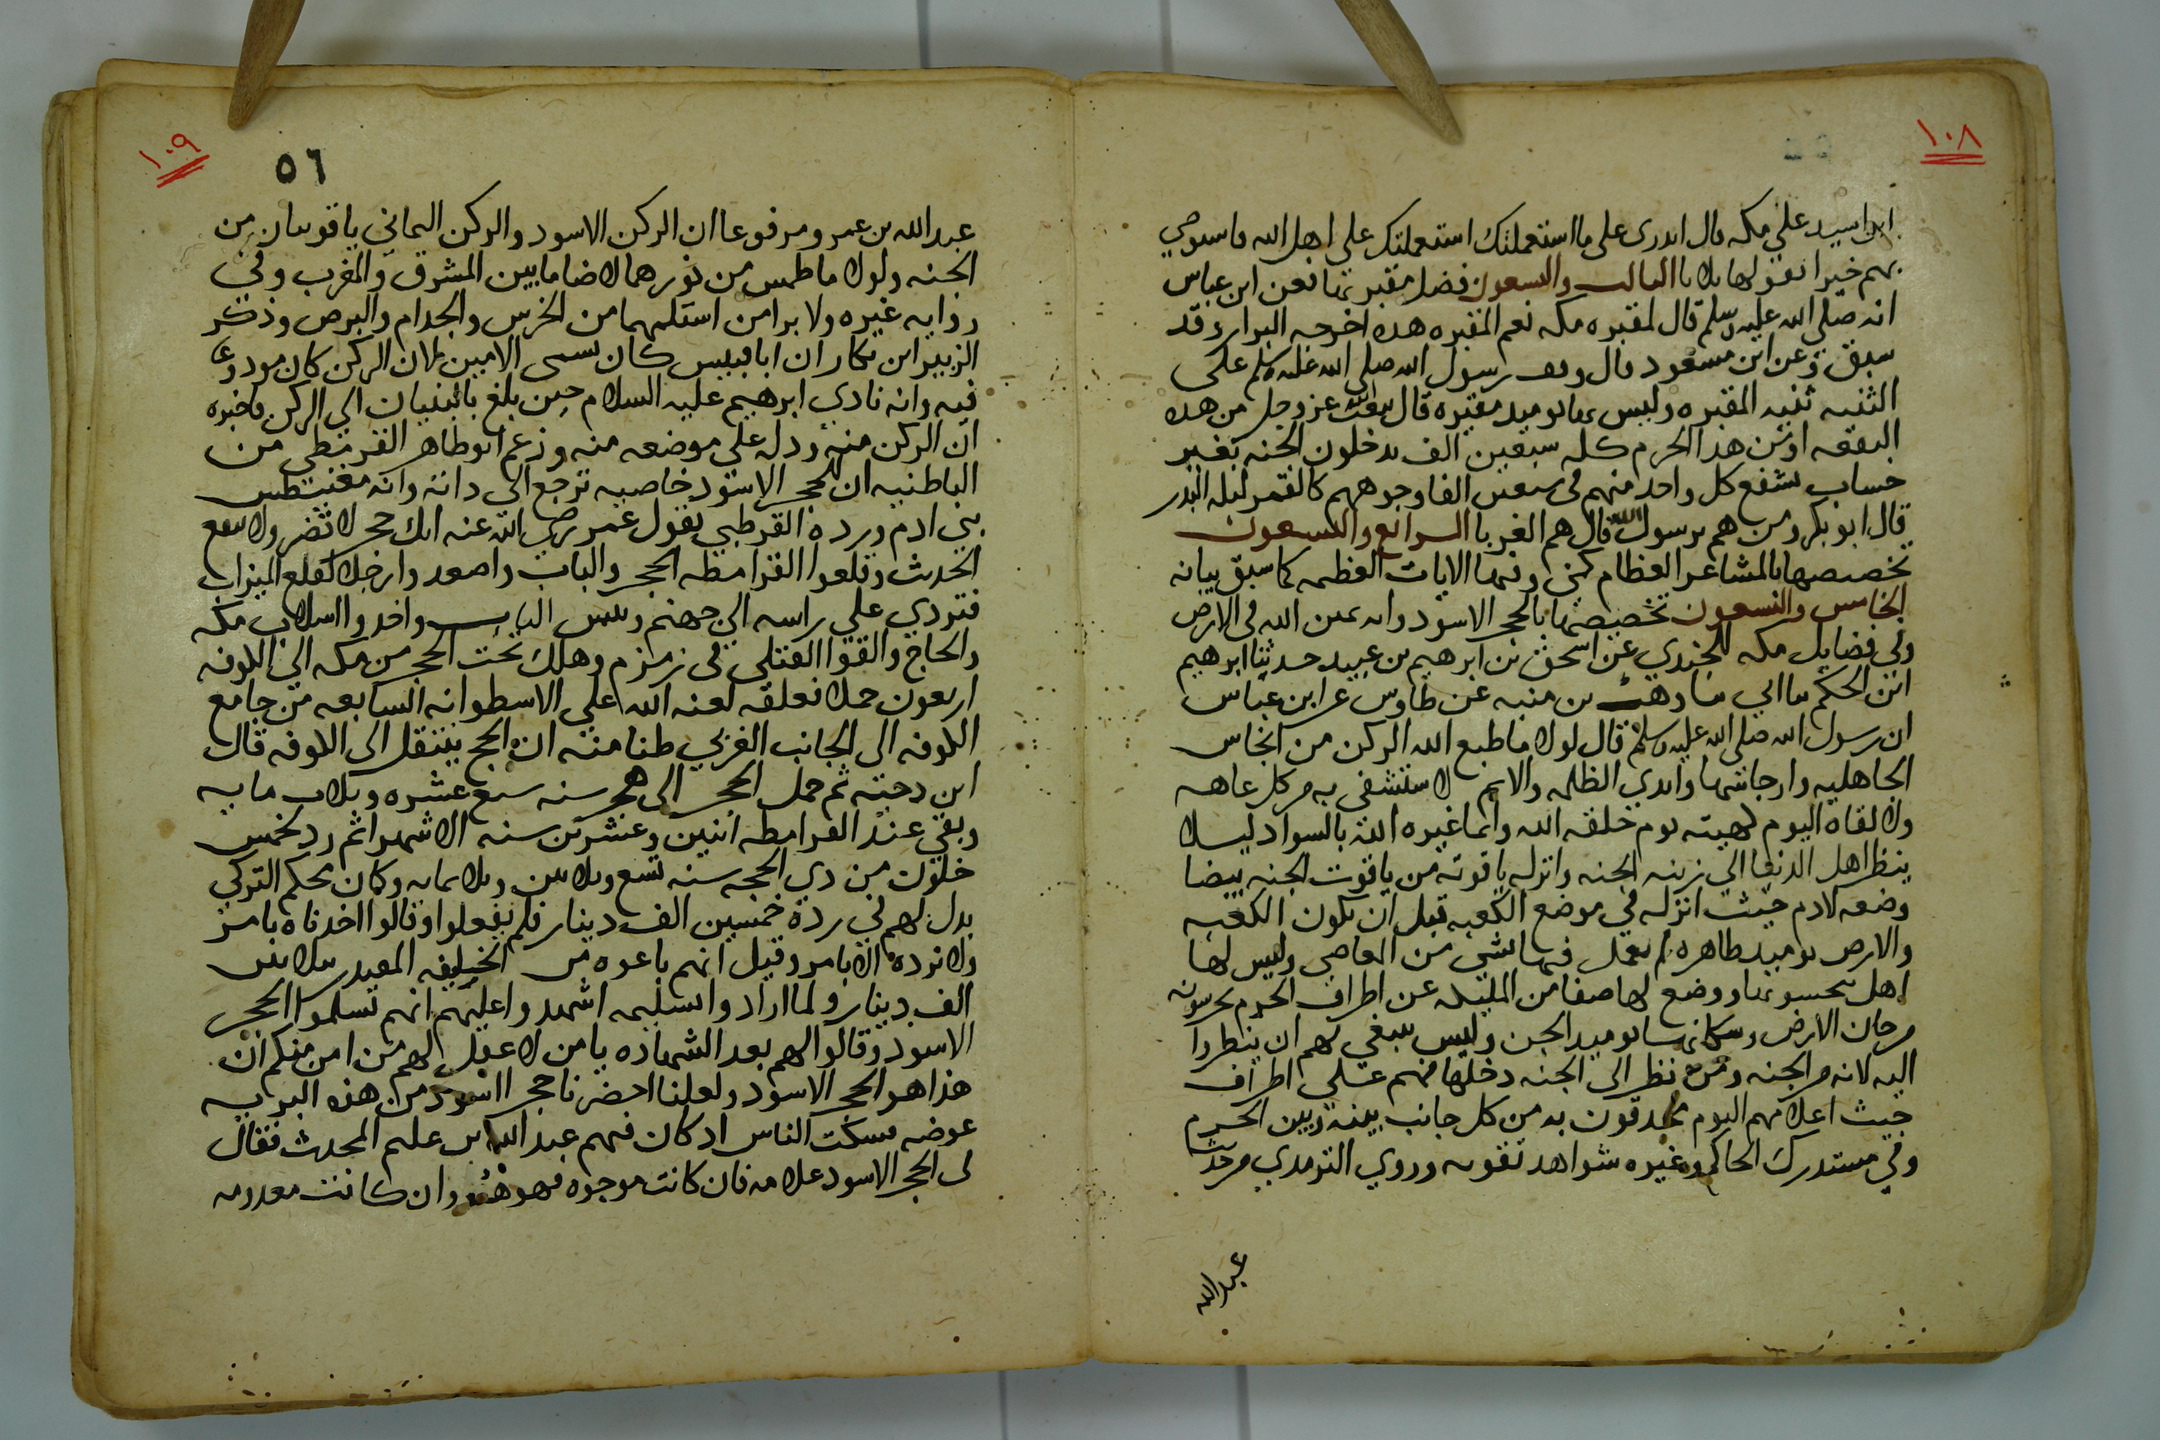 ١٠٨
ابن اسيد علي مكه قال اتدري على ما استعملتك استعملتك علي اهل الله فاستوص
بهم خيرا يقولها ثلاثا الثالث والتسعون فضل مقبرتها فعن ابن عباس
انه صلي الله عليه وسلم قال لمقبره مكه نعم المقبره هذه اخرجه البزار وقد
سبق وعن ابن مسعود قال وقف رسول الله صلي الله عليه وسلم علي
الثنيه ثنيه المقبره وليس بها يوميد مقبره قال يبعث الله عز وجل من هذه
البقعه او من هذا الحرم كله سبعين الف يدخلون الجنه بغير
حساب يشفع كل واحد منهم في سبعين الفا وجوههم كالقمر ليله البدر
قال ابو بكر ومن هم يرسول الله قال هم الغربا الرابع والتسعون
تخصيصها بالمشاعر العظام كمني وفيها الايات العظمه كما سبق بيانه
الخامس والتسعون تخصيصها بالحجر الاسود وانه يمين الله في الارض
وفي فضايل مكه للجندي عن اسحق بن ابرهيم بن عبيد حدثنا ابرهيم
ابن الحكم نا ابي نا وهب بن منبه عن طاوس عن ابن عباس
ان رسول الله صلى الله عليه وسلم قال لولا ما طبع الله الركن من انجاس
الجاهليه وارجاسها وايدي الظلمه والاثم لاستشفي به من كل عاهه
ولالفاه اليوم كهيته يوم خلقه الله وانما غيره الله بالسواد ليلا
ينظر اهل الدنيا الي زينه الجنه وانزله ياقوته من ياقوت الجنه بيضا
وضعه لادم حيث انزله في موضع الكعبه قبل ان تكون الكعبه
والارض يوميد طاهره لم يعمل فيها شي من المعاصي وليس لها
اهل ينجسونها ووضع لها صفا من المليكه عن اطراف الحرم يحرسونه
من جان الارض وسكانها يوميد الجن وليس ينبغي لهم ان ينظروا
اليه لانه من الجنه ومن نظر الى الجنه دخلها فهم علي اطراف
حيث اعلامهم اليوم يحدقون به من كل جانب بينه وبين الحرم
وفي مستدرك الحاكم وغيره شواهد تقويه وروي الترمدي من حديث
عبد الله
١٠٩
٥٦
عبد الله بن عمرو مرفوعا ان الركن الاسود والركن اليماني ياقوتتان من
الجنه ولولا ما طمس من نورهما لاضا ما بين المشرق والمغرب وفي
روايه غيره ولابرا من استلمهما من الخرس والجدام والبرص وذكر
الزبير ابن بكار ان ابا قبيس كان يسمى الامين لان الركن كان مودوعا
فيه وانه نادي ابرهيم عليه السلام حين بلغ بالبنيان الي الركن فاخبره
ان الركن منه ودل علي موضعه منه وزعم ابو طاهر القرمطي من
الباطنيه ان للحجر الاسود خاصيه ترجع الي ذاته وانه مغنيطس
بني ادم ورده القرطبي بقول عمر رضي الله عنه انك حجر لا تضر ولا تنفع
الحديث وقلعوا القرامطه الحجر والباب واصعدوا رجلا لقلع الميزاب
فتردي علي راسه الي جهنم وبيس الباب واخدوا اسلاب مكه
والحاج والقوا القتلي في زمزم وهلك تحت الحجر من مكه الي الكوفه
اربعون جملا فعلقه لعنه الله علي الاسطوانه السابعه من جامع
الكوفه الى الجانب الغربي ظنا منه ان الحج ينتقل الى الكوفه قال
ابن دحيه ثم حمل الحجر الى هجر سنه سبع عشره وثلاث مايه
وبقي عند القرامطه اثنين وعشرين سنه الا شهرا ثم رد لخمس
خلون من ذي الحجه سنه تسع وثلاثين وثلاثمايه وكان بحكم التركي
بدل لهم في رده خمسين الف دينار فلم يفعلوا وقالوا اخدناه بامر
ولا نرده الا بامر وقيل انهم باعوه من الخليفه المقتدر بثلاثين
الف دينار ولما اراد واتسليمه اشهدوا عليهم انهم تسلموا الحجر
الاسود وقالوا لهم بعد الشهاده يا من لا عقل لهم من امن منكم ان
هذا هو الحجر الاسود ولعلنا احضرنا حجرا اسود من هذه البريه
عوضه فسكت الناس اد كان فيهم عبد الله بن عليم المحدث فقال
لي الحجر الاسود علامه فان كانت موجوده فهو هو وان كانت معدومه